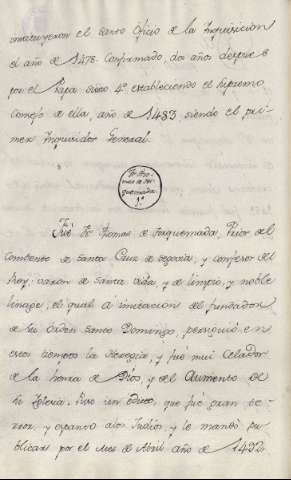 instituyeron el Santo Oficio de la Inquisicion
el año de 1478. Confirmado, dos años despues
por el Papa Sixto 4º estableciendo el Supremo
Consejo de ella, año de 1483, siendo el pri-
mer Inquisidor General.
Fr. Tho-
mas de Tor-
quemada.
1º
Fué Fr. Thomas de Torquemada, Prior del
Combento de Santa Cruz de Segovia, y confesor del
Rey: varon de Santa vida, y de limpio, y noble
linage; el qual á imitacion del fundador
de su Orden Santo Domingo, persiguió en
estos tiempos la Heregia, y fué mui Celador
de la honra de Dios, y del Aumento de
su Iglesia. Hizo un edicto, que fué gran
y espanto á los Judíos, y le mandó pu-
blicar por el Mes de Abril año de 1492.